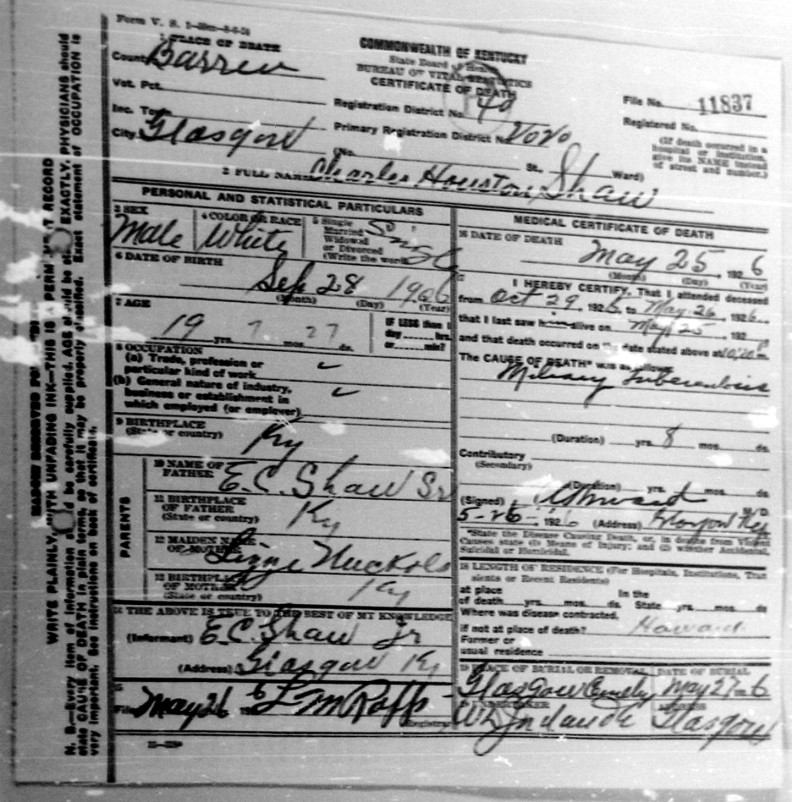 Form V. S.
1 PLACE OF DEATH
County Barren
COMMONWEALTH OF KENTUCKY
State Board of Health
BUREAU OF VITAL STATISTICS
CERTIFICATE OF DEATH
File No. 11837
Vot. Pct.
Registration District No. 40
Registered No.
Inc. Town
Primary Registration District No. 2020
City Glasgow
(No. St., Ward)
(If death occurred in a
hospital or institution,
give its NAME instead
of street and number.)
2 FULL NAME Charles Houston Shaw
PERSONAL AND STATISTICAL PARTICULARS
3 SEX
Male
4 COLOR OR RACE
White
5 Single
Married
Widowed
or Divorced
(Write the word)
Single
6 DATE OF BIRTH
Sep 28 1906
(Month) (Day) (Year)
7 AGE
19 yrs. 7 mos. 27 ds.
IF LESS than 1
day hrs.
or min?
8 OCCUPATION
(a) Trade, profession or
particular kind of work
(b) General nature of industry,
business or establishment in
which employed (or employer)
9 BIRTHPLACE
(State or country)
Ky
PARENTS
10 NAME OF
FATHER
E.C. Shaw Sr
11 BIRTHPLACE
OF FATHER
(State or country)
Ky
12 MAIDEN NAME
OF MOTHER
Nuckols
13 BIRTHPLACE
OF MOTHER
(State or country)
Ky
14 THE ABOVE IS TRUE TO THE BEST OF MY KNOWLEDGE
(Informant) E.C. Shaw Jr
(Address) Glasgow Ky
15
Filed May 26 192 6
Registrar
MEDICAL CERTIFICATE OF DEATH
16 DATE OF DEATH
May 25, 192 6
(Month) (Day) (Year)
17 I HEREBY CERTIFY, That I attended deceased
from Oct 29, 192 to May 26, 192 6,
that I last saw alive on May 25, 192
and that death occurred on the date stated above at
The CAUSE OF DEATH* was as follows:
Miliary Tuberculosis
(Duration) yrs. 8 mos. ds.
Contributory
(Secondary)
(Duration) yrs. mos. ds.
(Signed) M.D.
5-26-, 192 6 (Address) Glasgow Ky
*State the Disease Causing Death, or, in deaths from Violent
Causes state (1) Means of Injury; and (2) whether Accidental,
Suicidal or Homicidal.
18 LENGTH OF RESIDENCE (For Hospitals, Institutions, Transients or Recent Residents)
at place
of death yrs. mos. ds.
In the
State yrs. mos. ds.
Where was disease contracted,
if not at place of death? Howard
Former or
usual residence
19 PLACE OF BURIAL OR REMOVAL
Glasgow
DATE OF BURIAL
May 27 - 6
20 UNDERTAKER
ADDRESS
Glasgow
WRITE PLAINLY, WITH UNFADING INK—THIS IS A PERMANENT RECORD
N. B.—Every item of information should be carefully supplied. AGE should be stated EXACTLY. PHYSICIANS should
state CAUSE OF DEATH in plain terms, so that it may be properly classified. Exact statement of OCCUPATION is
very important. See instructions on back of certificate.